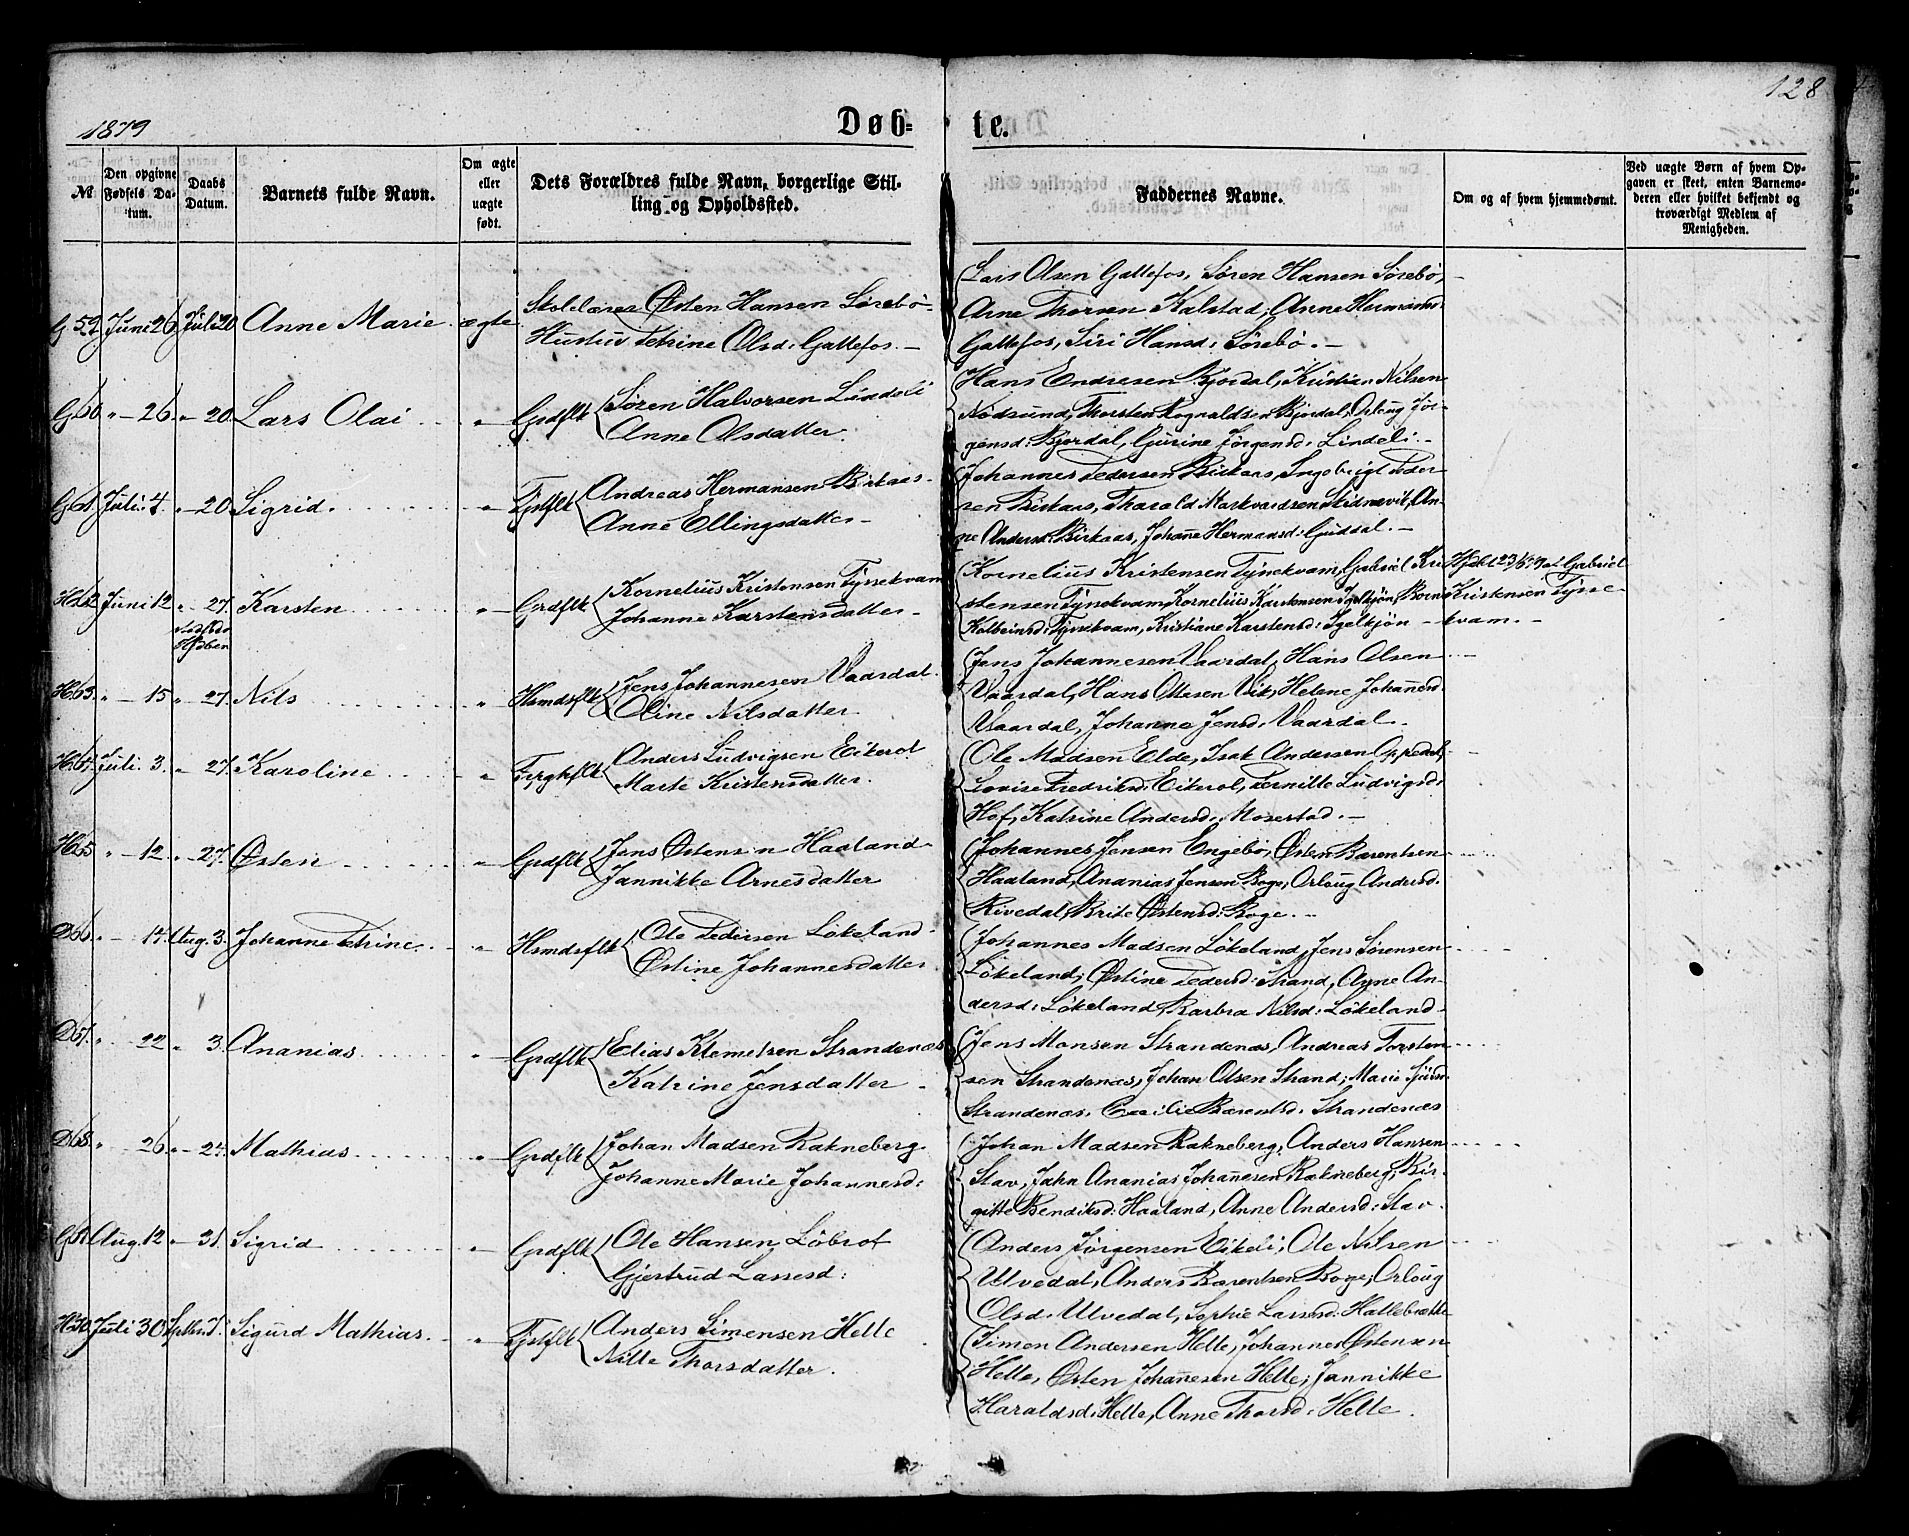 128
1879
Døb-
te.
№
Den opgivne Fødsels Datum.
Daabs Datum.
Barnets fulde Navn.
Om ægte eller uægte født.
Dets Forældres fulde Navn, borgerlige Stilling og Opholdssted.
Faddernes Navne.
Om og af hvem hjemmedømt.
Ved uægte Børn af hvem Opgaven er skeet, enten Barnemoderen eller hvilket bekjendt og troværdigt Medlem af Menigheden.
G 59 Juni 26 Juli 20 Anne Marie ægte
Skolelærer Østen Hansen Sørebø
Hustru Petrine Olsd: Gallefos.
Lars Olsen Gallefos, Søren Hansen Sørebø,
Arne Thorsen Kalstad, Anne Hermansd:
Gallefos, Siri Hansd: Sørebø.
G 60 " 26 " 20 Lars Olai "
Grdflk Søren Halvorsen Lindeli
Anne Olsdatter.
Hans Endresen Bjordal, Kristian Nilsen
Nødsund, Thorsten Rognaldsen Bjordal, Orloug Jør-
gensd: Bjordal, Gurine Jørgensd: Lindeli.
G 61 Juli 4. " 20 Sigrid. "
Tjstflk Andreas Hermansen Birkaas
Anne Ellingsdatter
Johannes Pedersen Birkaas, Ingebrigt Peder-
sen Birkaas, Tharald Markvardsen Skidnevik, An-
ne Andersd: Birkaas, Johanne Hermansd: Guddal.
H 62 Juni 12 " 27. Karsten "
Grdflk Kornelius Kristensen Tynekvam
Johanne Karstensdatter
Kornelius Kristensen Tynekvam, Gabriel Kri-
stensen Tynekvam, Kornelius Karstensen Igelkjøn,
Kolbeinsd: Tynekvam, Kristiane Karstensd: Igelkjøn
af Gabriel
Kristensen Tynne-
kvam.
H 63. " 15 " 27. Nils "
Hsmdsflk Jens Johannesen Vaardal
Oline Nilsdatter
Jens Johannesen Vaardal, Hans Olsen
Vaardal, Hans Ottesen Vik, Helene Johannesd:
Vaardal, Johanne Jensd: Vaardal.
H 64 Juli 3. " 27. Karoline "
Anders Ludvigsen Eikerot
Marte Kristensdatter.
Ole Madsen Elde, Isak Andersen Oppedal,
Lovise Fredriksd: Eikerot, Pernille Ludvigsd:
Hof, Katrine Andersd: Moserstad.
H 65 " 12. " 27. Østen "
Grdflk Jens Østensen Haaland
Jannikke Arnesdatter
Johannes Jensen Engebø, Østen Barentsen
Haaland, Ananias Jensen Boge, Orloug Andersd.
Rivedal, Brite Østensd: Boge.
D 66 " 14. Aug. 3. Johanne Petrine "
Hsmdsflk Ole Pedersen Løkeland
Østine Johannesdatter
Johannes Madsen Løkeland, Jens Sørensen
Løkeland, Østine Pedersd: Strand, Anne An-
dersd: Løkeland, Barbra Nilsd: Løkeland
D 67. " 22 " 3. Ananias "
Grdflk Elias Klemetsen Strandenæs
Katrine Jensdatter
Jens Monsen Strandenæs, Andreas Torsten-
sen Strandenæs, Johan Olsen Strand, Marie
Strandenæs, Cecilie Barentsd: Strandenæs
D 68. " 26 " 24. Mathias "
Grdflk Johan Madsen Rakneberg
Johanne Marie Johannesd:
Johan Madsen Rakneberg, Anders Hansen
Stav, Jahn Ananias Johannesen Rakneberg, Bir-
gitte Bendiksd: Haaland, Anne Andersd: Stav.
G 69 Aug. 12 " 31. Sigrid "
Grdflk Ole Hansen Løbrot
Gjertrud Lassesd:
Anders Jørgensen Eikeli, Ole Nilsen
Ulvedal, Anders Barentsen Boge, Orloug
Olsd: Ulvedal, Sophie Larsd: Hallebrække
H 70 Juli 30 Septbr. 7. Sigurd Mathias. "
Tjstflk Anders Simensen Helle
Nille Thorsdatter.
Simon Andersen Helle, Johannes Østensen
Helle, Østen Johannesen Helle, Jannikke
Haraldsd: Helle, Anne Thorsd: Helle.